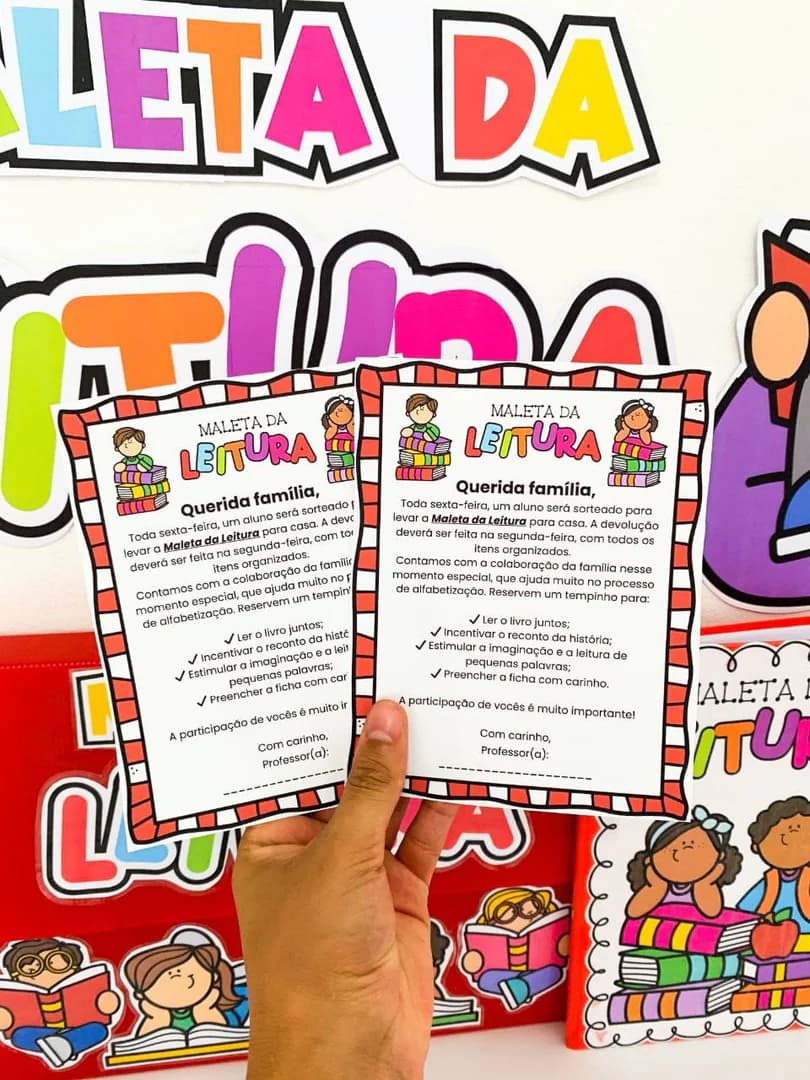 LETA DA
ITURA
MALETA DA
LEITURA
Querida família,
Toda sexta-feira, um aluno será sorteado
levar a Maleta da Leitura para casa. A devo
deverá ser feita na segunda-feira, com to
itens organizados.
Contamos com a colaboração da famíli
momento especial, que ajuda muito no
de alfabetização. Reservem um tempin
✓ Ler o livro juntos;
✓ Incentivar o reconto da histó
✓ Estimular a imaginação e a lei
pequenas palavras;
✓ Preencher a ficha com car
A participação de vocês é muito i
Com carinho,
Professor(a):
MALETA DA
LEITURA
Querida família,
Toda sexta-feira, um aluno será sorteado para
levar a Maleta da Leitura para casa. A devolução
deverá ser feita na segunda-feira, com todos os
itens organizados.
Contamos com a colaboração da família nesse
momento especial, que ajuda muito no processo
de alfabetização. Reservem um tempinho para:
✓ Ler o livro juntos;
✓ Incentivar o reconto da história;
✓ Estimular a imaginação e a leitura de
pequenas palavras;
✓ Preencher a ficha com carinho.
A participação de vocês é muito importante!
Com carinho,
Professor(a):
ALETA D
ITU